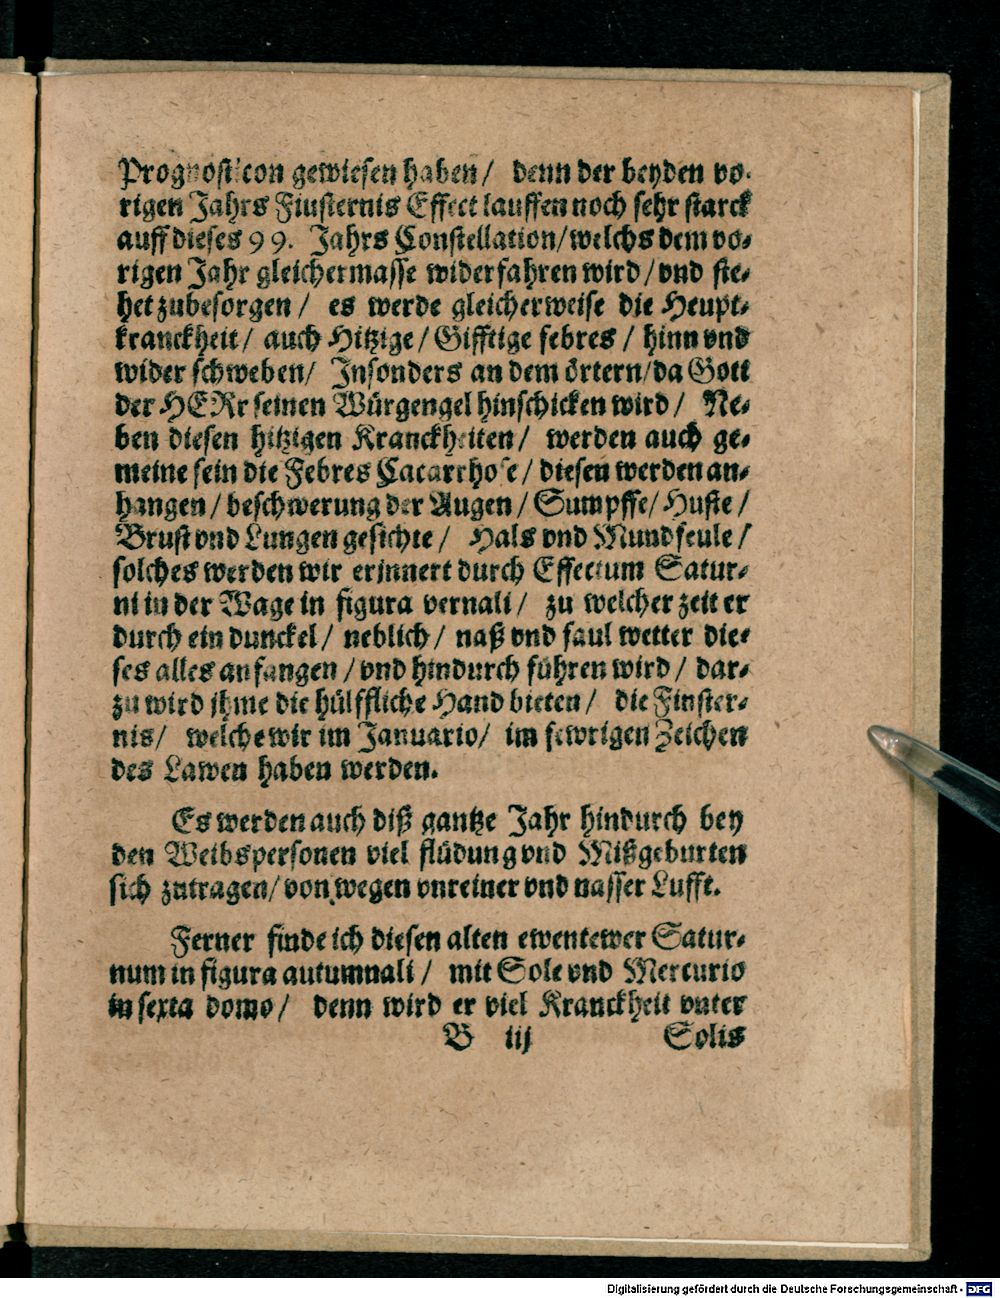 Prognosticon gewiesen haben / denn der beyden vo⸗
rigen Jahrs Fiusternis Effect lauffen noch sehr starck
auff dieses 99. Jahrs Constellation / welchs dem vo⸗
rigen Jahr gleichermasse widerfahren wird / vnd ste⸗
het zubesorgen / es werde gleicherweise die Heupt⸗
kranckheit / auch Hitzige / Gifftige febres / hinn vnd
wider schweben / Jnsonders an dem örtern / da Gott
der HERr seinen Würgengel hinschicken wird / Ne⸗
ben diesen hitzigen Kranckheiten / werden auch ge⸗
meine sein die Febres Catarrhose / diesen werden an⸗
hangen / beschwerung der Augen / Sumpffe / Huste /
Brust vnd Lungen gesichte / Hals vnd Mundfeule /
solches werden wir erjnnert durch Effectum Satur⸗
ni in der Wage in figura vernali / zu welcher zeit er
durch ein dunckel / neblich / naß vnd faul wetter die⸗
ses alles anfangen / vnd hindurch führen wird / dar⸗
zu wird jhme die hülffliche Hand bieten / die Finster⸗
nis / welche wir im Januario / im fewrigen Zeichen
des Lawen haben werden.
Es werden auch diß gantze Jahr hindurch bey
den Weibspersonen viel flüdung vnd Mißgeburten
sich zutragen / von wegen vnreiner vnd nasser Lufft.
Ferner finde ich diesen alten ewentewer Satur⸗
num in figura autumnali / mit Sole vnd Mercurio
in sexta domo / denn wird er viel Kranckheit vnter
B iij Solis
Digitalisierung gefördert durch die Deutsche Forschungsgemeinschaft - DFG